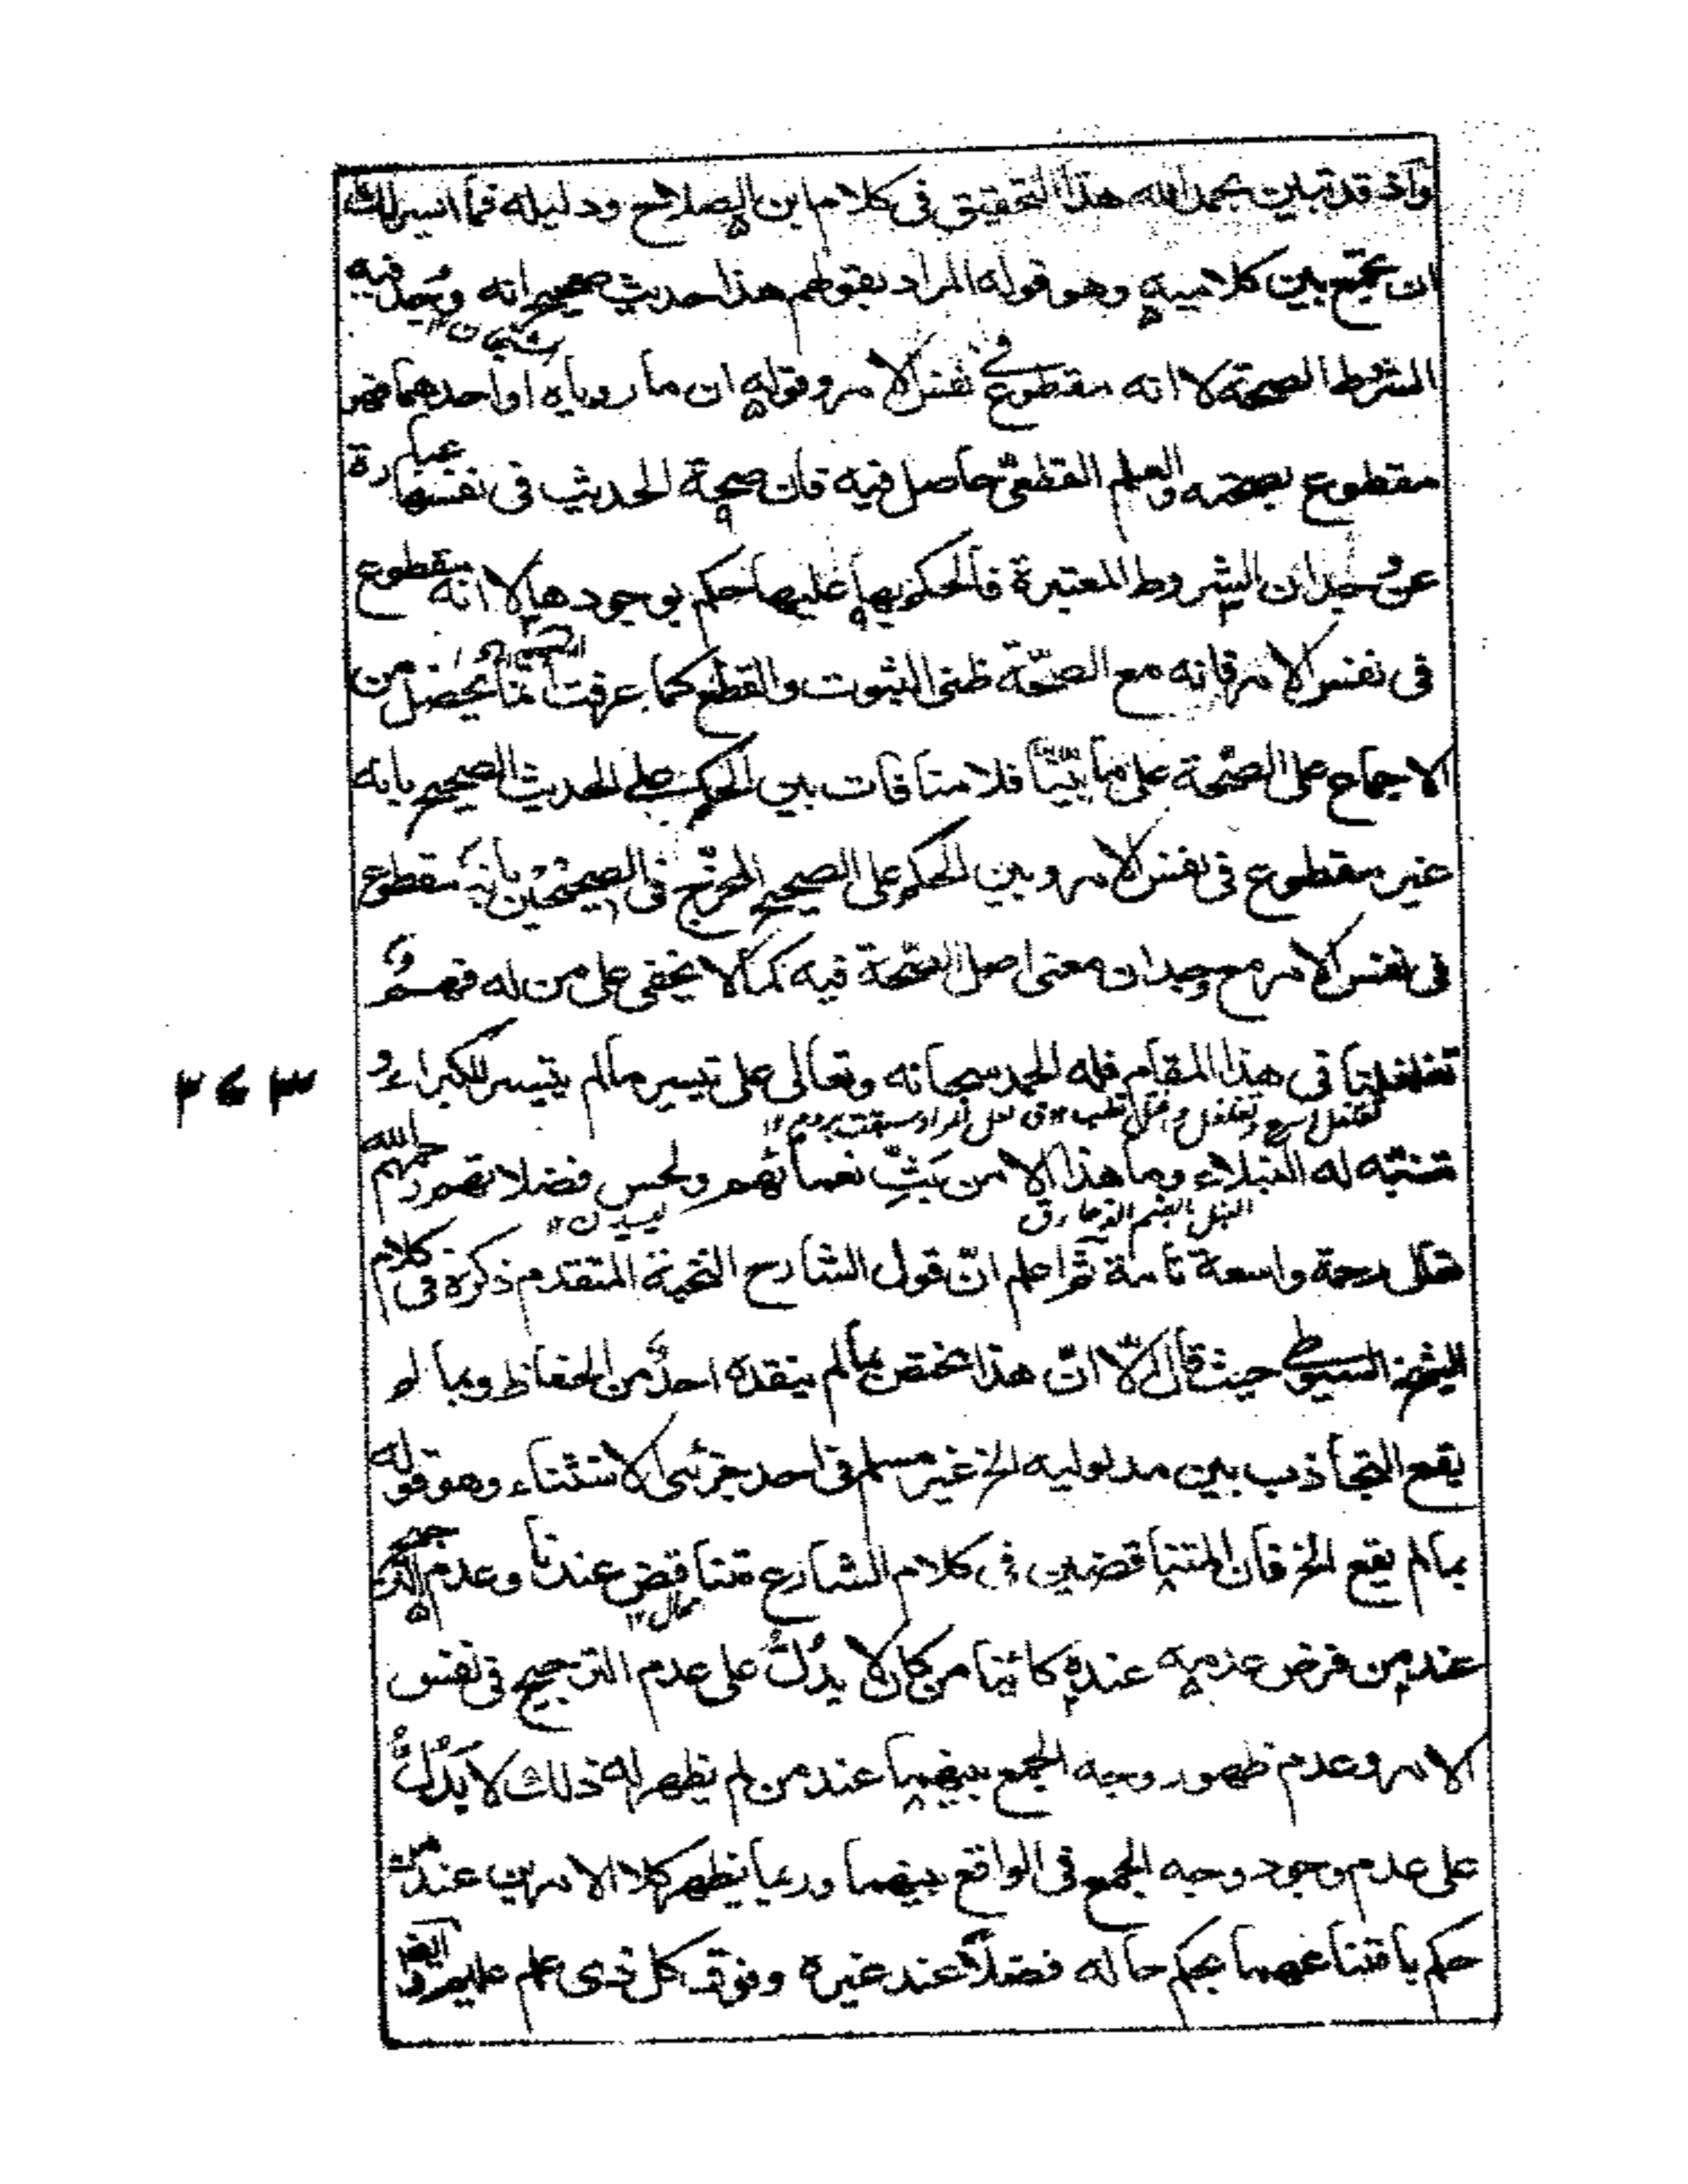 وأذ قد تبين بحمد الله هذا التحقيق فى كلام ابن الصلاح ودليله فما ايسر لك
ان تجتمع بين كلاميه وهو قوله المراد بقولهم هذا حديث صحيح انه وُجد فيه
الشروط الصحة لا انه مقطوع فى نفس الامر وقوله ان ما روياه او احدهما فهو
شيخان ١٢
مقطوع بصحته والعلم القطعىّ حاصل فيه فان صحة الحديث فى نفسها عبارة
عن وجدان الشروط المعتبرة فالحكم بها عليها حكم بوجودها لا انه مقطوع
فى نفس الامر فانه مع الصحّة ظنى الثبوت والقطع كما عرفت انما يحصل من
الاجماع على الصّحة على ما بيّنّا فلا منافات بين الحكم على الحديث الصحيح بانه
غير مقطوع فى نفس الامر وبين الحكم على الصحيح المخرّج فى الصحيحين بانه مقطوع
فى نفس الامر مع وجدان معنى اصل الصّحة فيه كما لا يخفى على من له فهم و
تغلغلنا فى هذا المقام فله الحمد سبحانه وتعالى على تيسير ما لم يتيسر للكبراء و
٣٧٣
تنبّه له النبلاء وما هذا الا من بَثِّ نعمائهم ولحس فضلاتهم رحمهم الله
النبل بالضم الذكا
ليسيدن ١٢
تعالى رحمة واسعة تامة ثم اعلم انّ قول الشارح النخبة المتقدم ذكره فى كلام
الشيخ السيوطى حيث قال الّا انّ هذا يختص بما لم ينقده احدٌ من الحفاظ وبما لم
يقع التجاذب بين مدلوليه الخ غير مسلم فى احد جزئى الاستثناء وهو قوله
بما لم يقع الخ فان المتناقضين فى كلام الشارع متناقض عندنا وعدم الترجيح
عند من فرض عدمه عنده كائنا من كان لا يدُلُّ على عدم الترجيح فى نفس
الامر وعدم ظهور وجه الجمع بينهما عند من لم يظهر له ذلك لا يَدُلُّ
على عدم وجود وجه الجمع فى الواقع بينهما وربما يظهر كلا الامرين عند من
حكم بامتناعهما بحكم حاله فضلًا عند غيره وفوق كل ذى علم عليم و